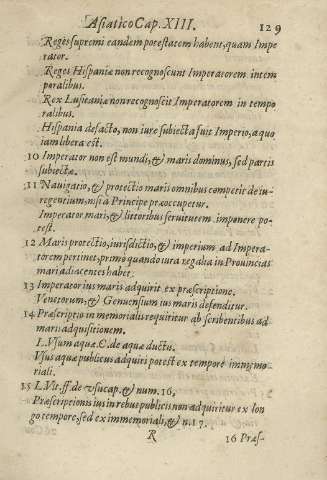 Asiatico Cap. XIII. 129
Reges supremi eandem potestatem habent, quam Impe
rator.
Reges Hispaniæ non recognoscunt Imperatorem in tem
poralibus.
Rex Lusitaniæ non recognoscit Imperatorem in tempo
ralibus.
Hispania de facto, non iure subiecta fuit Imperio, a quo
iam libera est.
10 Imperator non est mundi, & maris dominus, sed partis
subiectæ.
11 Nauigatio, & protectio maris omnibus competit de iu-
re gentium, nisi a Principe præoccupetur.
Imperator mari, & littoribus seruitutem imponere po-
test.
12 Maris protectio, iurisdictio, & imperium ad Impera-
torem pertinet, primo quando iura regalia in Prouincias
mari adiacentes habet.
13 Imperator ius maris adquirit ex præscriptione.
Venetorum, & Genuensium ius maris defenditur.
14 Præscriptio in memorialis requiritur ab scribentibus ad
maris adquisitionem.
L. Vsum aquæ. C. de aquæ ductu.
Vsus aquæ publicus adquiri potest ex tempore immemo
riali.
15 L. Vlt. ff. de vsucap. & num. 16,
Præscriptionis ius in rebus publicis non adquiritur ex lon
go tempore, sed ex immemoriali, & n. 17.
R 16 Præs-